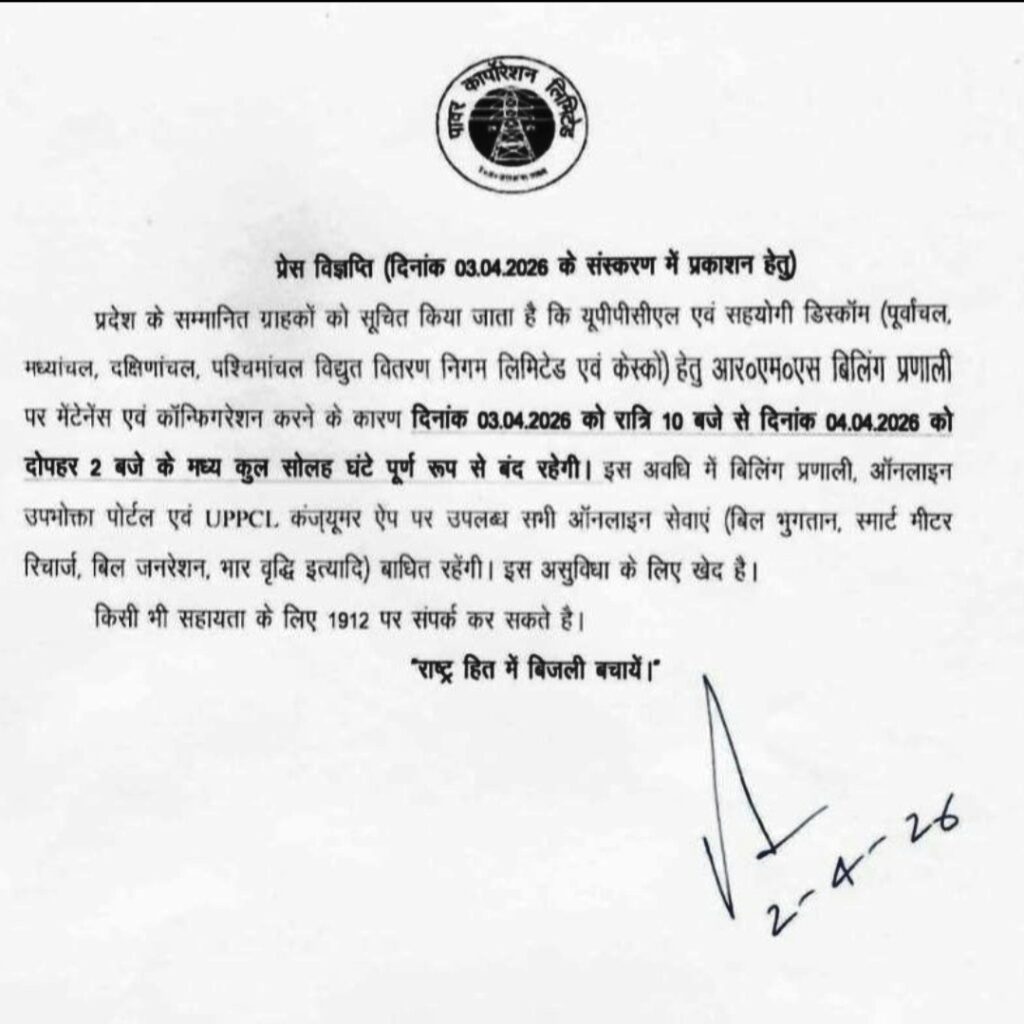 पावर कार्पोरेशन लिमिटेड
प्रेस विज्ञप्ति (दिनांक 03.04.2026 के संस्करण में प्रकाशन हेतु)
प्रदेश के सम्मानित ग्राहकों को सूचित किया जाता है कि यूपीपीसीएल एवं सहयोगी डिस्कॉम (पूर्वाचल,
मध्यांचल, दक्षिणांचल, पश्चिमांचल विद्युत वितरण निगम लिमिटेड एवं केस्को) हेतु आर०एम०एस बिलिंग प्रणाली
पर मेंटेनेंस एवं कॉन्फिगरेशन करने के कारण दिनांक 03.04.2026 को रात्रि 10 बजे से दिनांक 04.04.2026 को
दोपहर 2 बजे के मध्य कुल सोलह घंटे पूर्ण रूप से बंद रहेगी। इस अवधि में बिलिंग प्रणाली, ऑनलाइन
उपभोक्ता पोर्टल एवं UPPCL कंज्यूमर ऐप पर उपलब्ध सभी ऑनलाइन सेवाएं (बिल भुगतान, स्मार्ट मीटर
रिचार्ज, बिल जनरेशन, भार वृद्धि इत्यादि) बाधित रहेंगी। इस असुविधा के लिए खेद है।
किसी भी सहायता के लिए 1912 पर संपर्क कर सकते है।
"राष्ट्र हित में बिजली बचायें।"
2-4-26